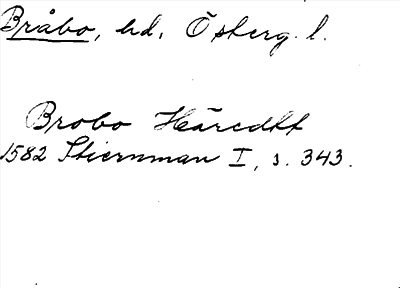 Bråbo, hd, Österg. l.
Brobo Häredtt
1582 Stiernman I, s. 343.